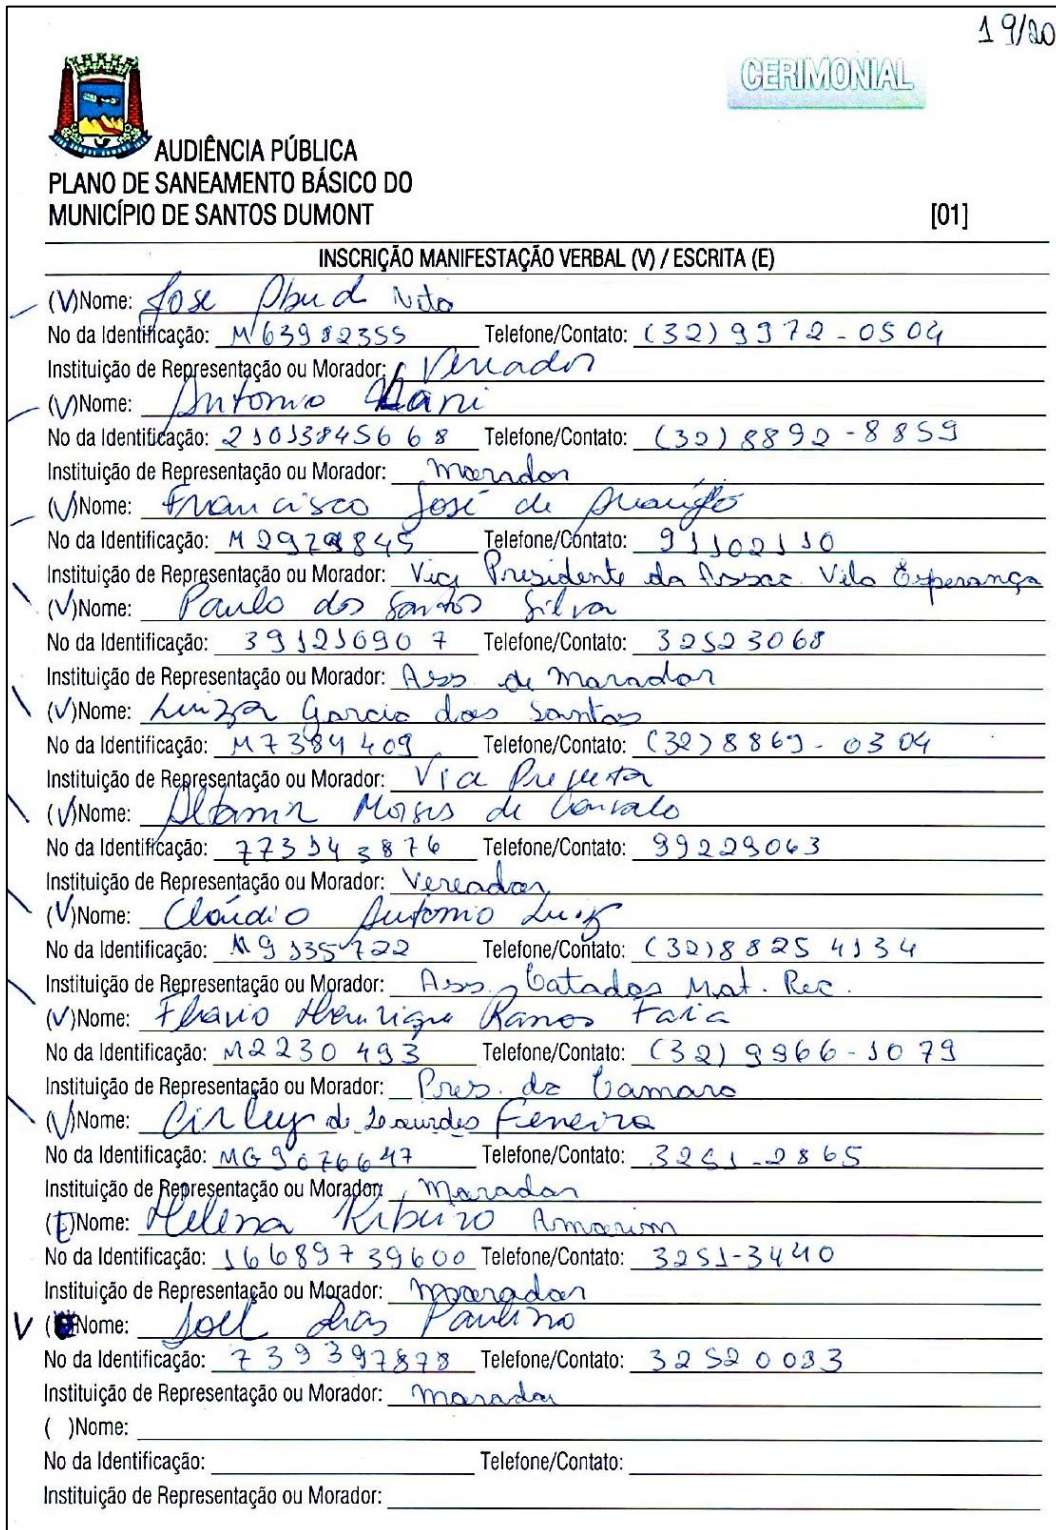 19/20
CERIMONIAL
AUDIÊNCIA PÚBLICA
PLANO DE SANEAMENTO BÁSICO DO
MUNICÍPIO DE SANTOS DUMONT
[01]
INSCRIÇÃO MANIFESTAÇÃO VERBAL (V) / ESCRITA (E)
(V)Nome: Jose Abud Neto
No da Identificação: M 63982355 Telefone/Contato: (32) 9972-0504
Instituição de Representação ou Morador: Vereador
(V)Nome: Antonio
No da Identificação: 21013845668 Telefone/Contato: (32) 8892-8859
Instituição de Representação ou Morador: Morador
(V)Nome: Francisco José de Araújo
No da Identificação: Telefone/Contato: 91102110
Instituição de Representação ou Morador: Vice Presidente da Assoc. Vila Esperança
(V)Nome: Paulo dos Santos Silva
No da Identificação: 391210907 Telefone/Contato: 32523068
Instituição de Representação ou Morador: Ass de Morador
(V)Nome: Luiza Garcia dos Santos
No da Identificação: M7384409 Telefone/Contato: (32) 8869-0304
Instituição de Representação ou Morador: Vice Prefeita
(V)Nome: Altamir Moises de Carvalo
No da Identificação: Telefone/Contato: 99229063
Instituição de Representação ou Morador: Vereador
(V)Nome: Cláudio Antonio Luiz
No da Identificação: Telefone/Contato: (32) 8825 4134
Instituição de Representação ou Morador: Ass. Catados Mat. Rec.
(V)Nome: Flavio Henrique Ramos Faria
No da Identificação: M2230 493 Telefone/Contato: (32) 9966-1079
Instituição de Representação ou Morador: Pres. da Camara
(V)Nome: Cirley de Lourdes Ferreira
No da Identificação: MG 9076647 Telefone/Contato: 3251-2865
Instituição de Representação ou Morador: Morador
(E)Nome: Helena Ribeiro Amorim
No da Identificação: 16689739600 Telefone/Contato: 3251-3440
Instituição de Representação ou Morador: Morador
V ( )Nome: Joel Dias Paulino
No da Identificação: Telefone/Contato: 32520033
Instituição de Representação ou Morador: Morador
( )Nome:
No da Identificação: Telefone/Contato:
Instituição de Representação ou Morador: